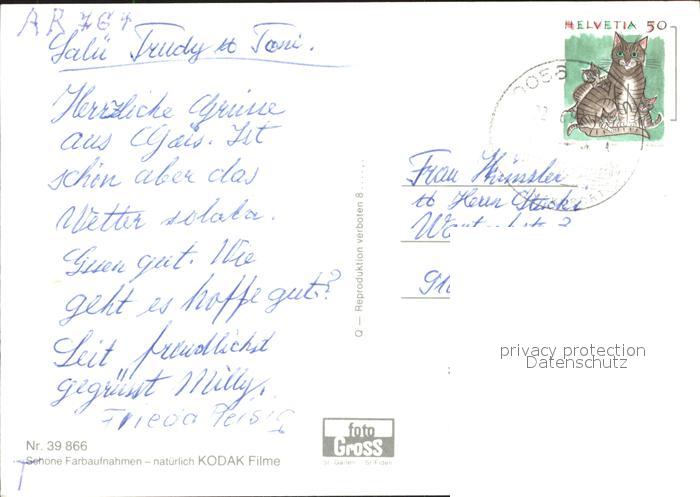 AR 767
Salü Trudy u Toni.
Herzliche Grüsse
aus Gais. Ist
schön aber das
Wetter solala.
Essen gut. Wie
geht es hoffe gut?
Seit freundlichst
gegrüsst Milly.
Frieda
Nr. 39 866
Schöne Farbaufnahmen – natürlich KODAK Filme
Q — Reproduktion verboten 8......
foto
Gross
St. Gallen St. Fiden
HELVETIA 50
9056
Frau
u Herrn Stucki
privacy protection
Datenschutz